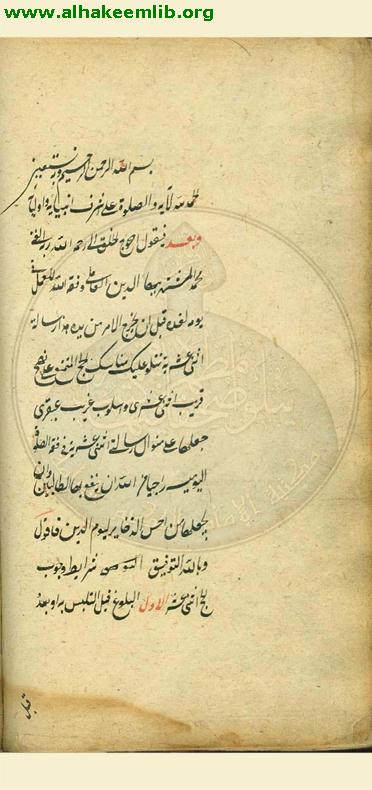 www.alhakeemlib.org
بسم الله الرحمن الرحيم وبه نستعين
الحمد لله لآيه والصلوة على شرف انبيائه واوليائه
وبعد فيقول احوج الخلق الى رحمة الله ربه الغني
محمد المشتهر ببهاء الدين العاملي وفقه الله للعمل في
يومه لغده قبل ان يخرج الامر من يده هذه رسالة
اثنى عشرية تتلو عليك مناسك الحج على نهج
قريب واسلوب غريب عبقري
جعلتها على منوال رسالة اثنى عشرية في فقه الصلوة
اليومية راجيا من الله ان ينفع بها الطالبين وان
يجعلها من احسن الذخاير ليوم الدين فاقول
وبالله التوفيق شرايط وجوب
الحج اثنى عشر الاول البلوغ قبل التلبس به او بعد
قبل